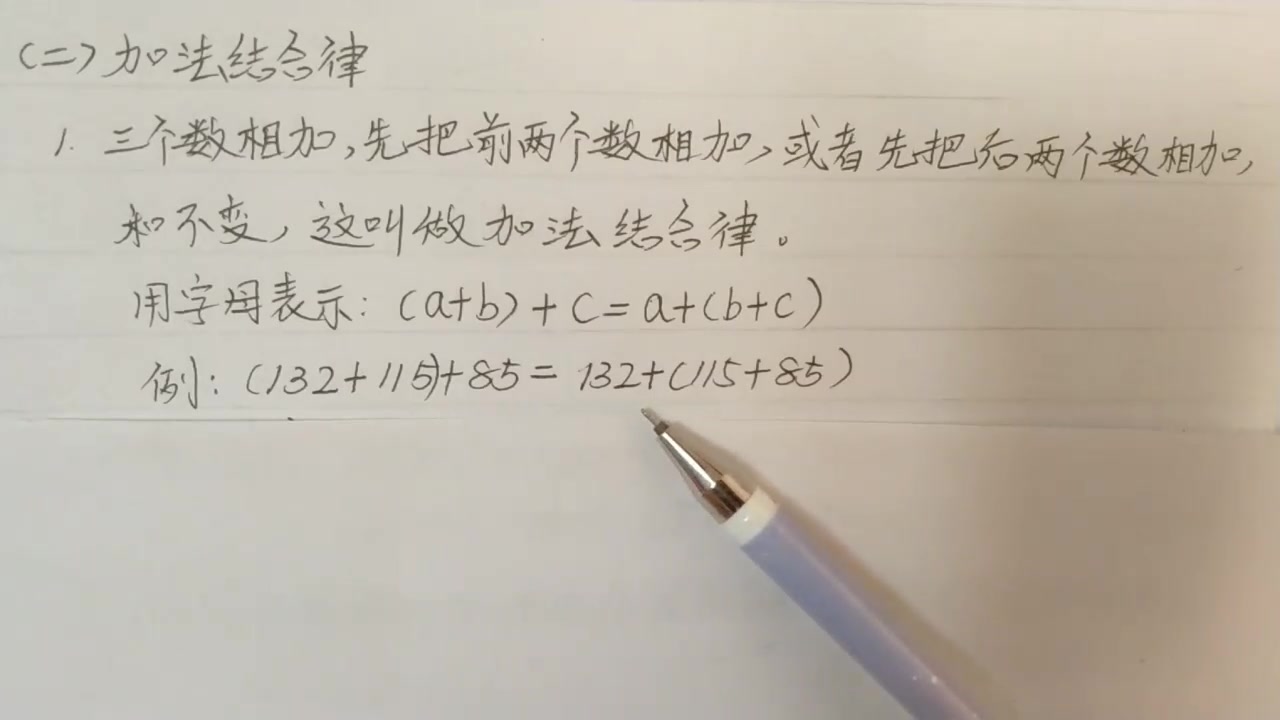 (二)加法结合律
1. 三个数相加,先把前两个数相加,或者先把后两个数相加,
和不变,这叫做加法结合律。
用字母表示:(a+b)+c=a+(b+c)
例:(132+115)+85=132+(115+85)